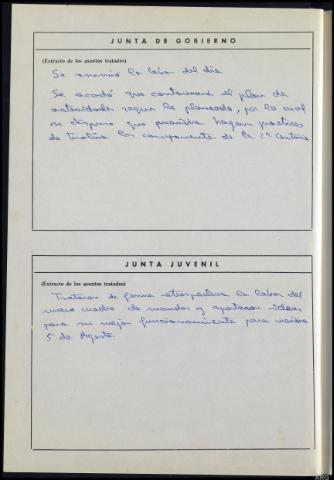 JUNTA DE GOBIERNO
(Extracto de los asuntos tratados)
Se asumió la labor del dia
Se acordó que continuara el plan de
actividades segun lo planeado, por lo cual
se dispuso que mañana hagan practicas
de tirolina los componente de la 2ª Centuria
JUNTA JUVENIL
(Extracto de los asuntos tratados)
Trataron de forma retrospectiva la labor del
nuevo cuadro de mandos y aportaron ideas
para su mejor funcionamiento para mañana
5 de Agosto.